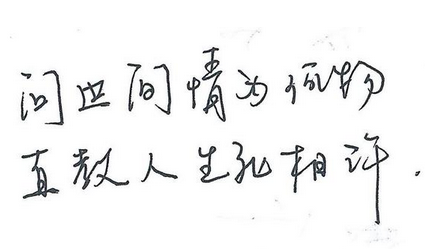 问世间情为何物
直教人生死相许.